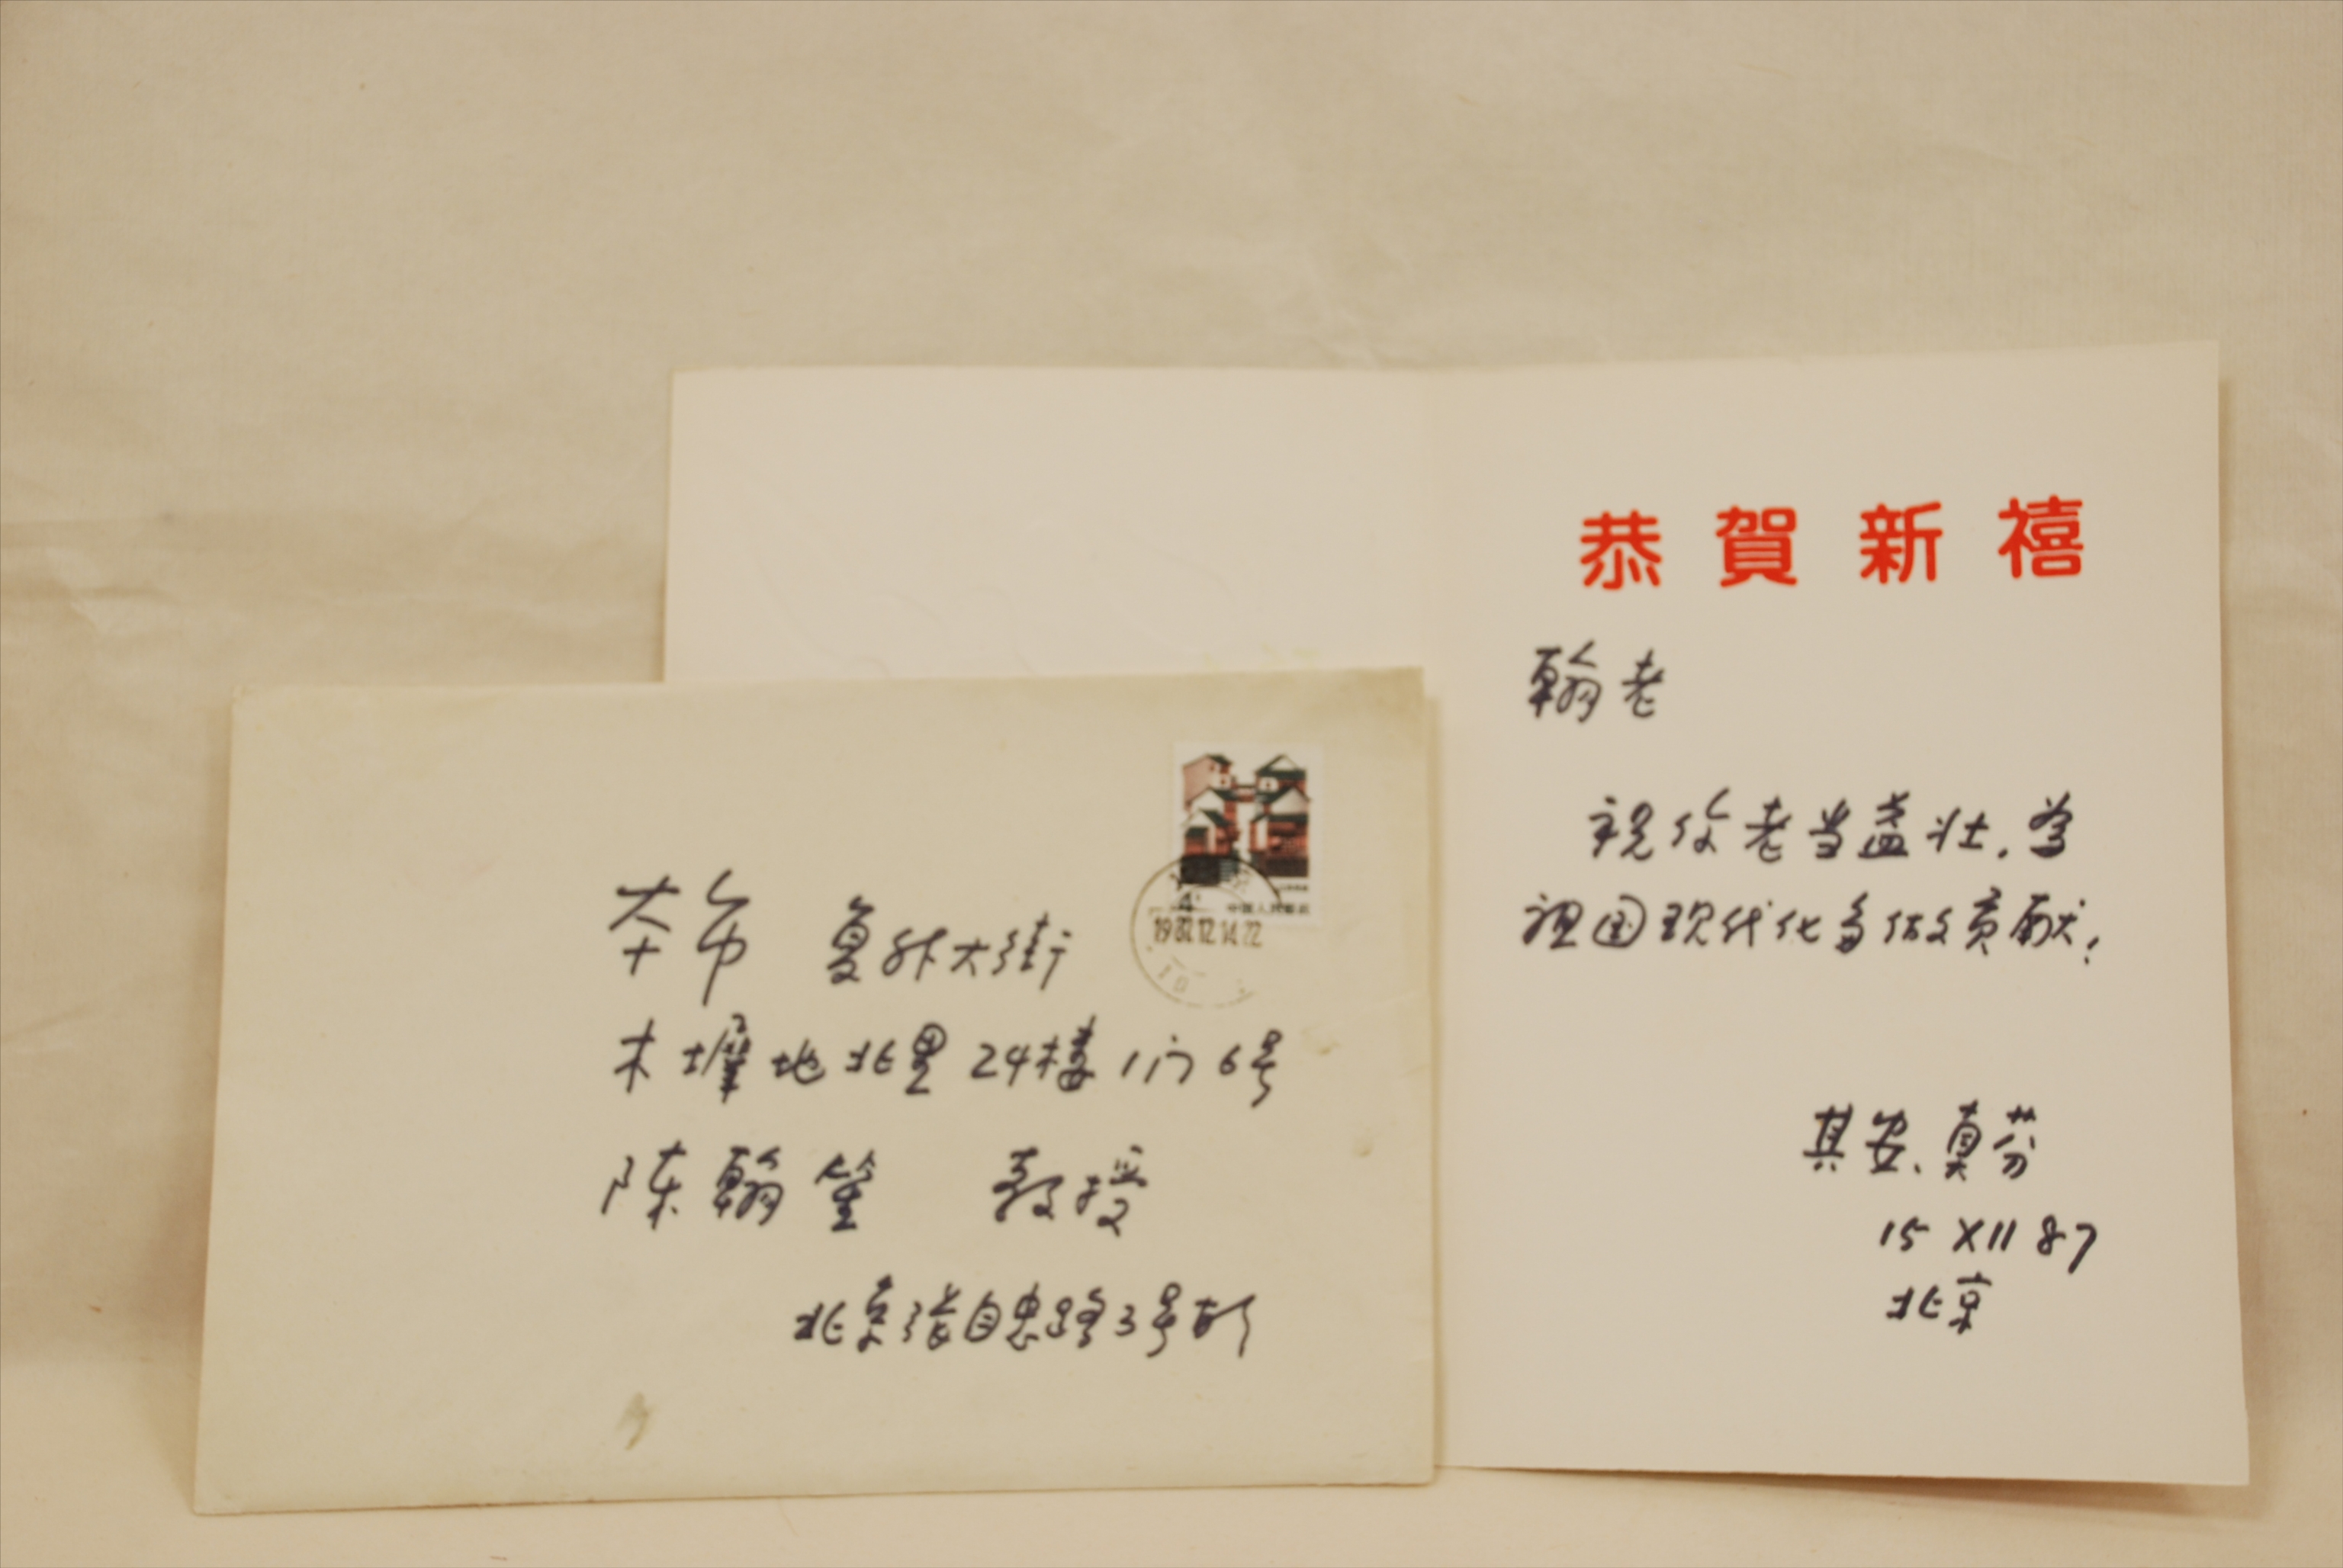 本市 复外大街
木墀地北里24楼1门6号
陈翰笙 教授
北京张自忠路3号
4
中国人民邮政
恭賀新禧
翰老
祝你老当益壮,为
祖国现代化多做贡献!
其安、真芬
15 XII 87
北京